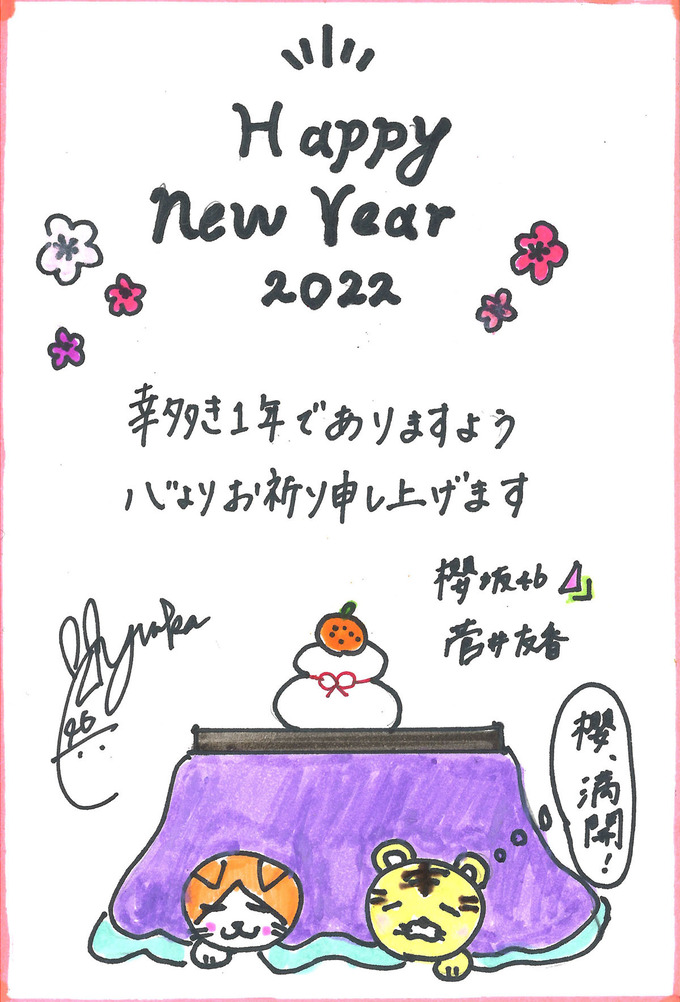 Happy
New Year
2022
幸多き1年でありますよう
心よりお祈り申し上げます
櫻坂46
菅井友香
Yuuka
46
櫻、満開!